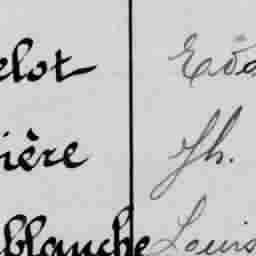 elot
ière Jh.
blanche Louis